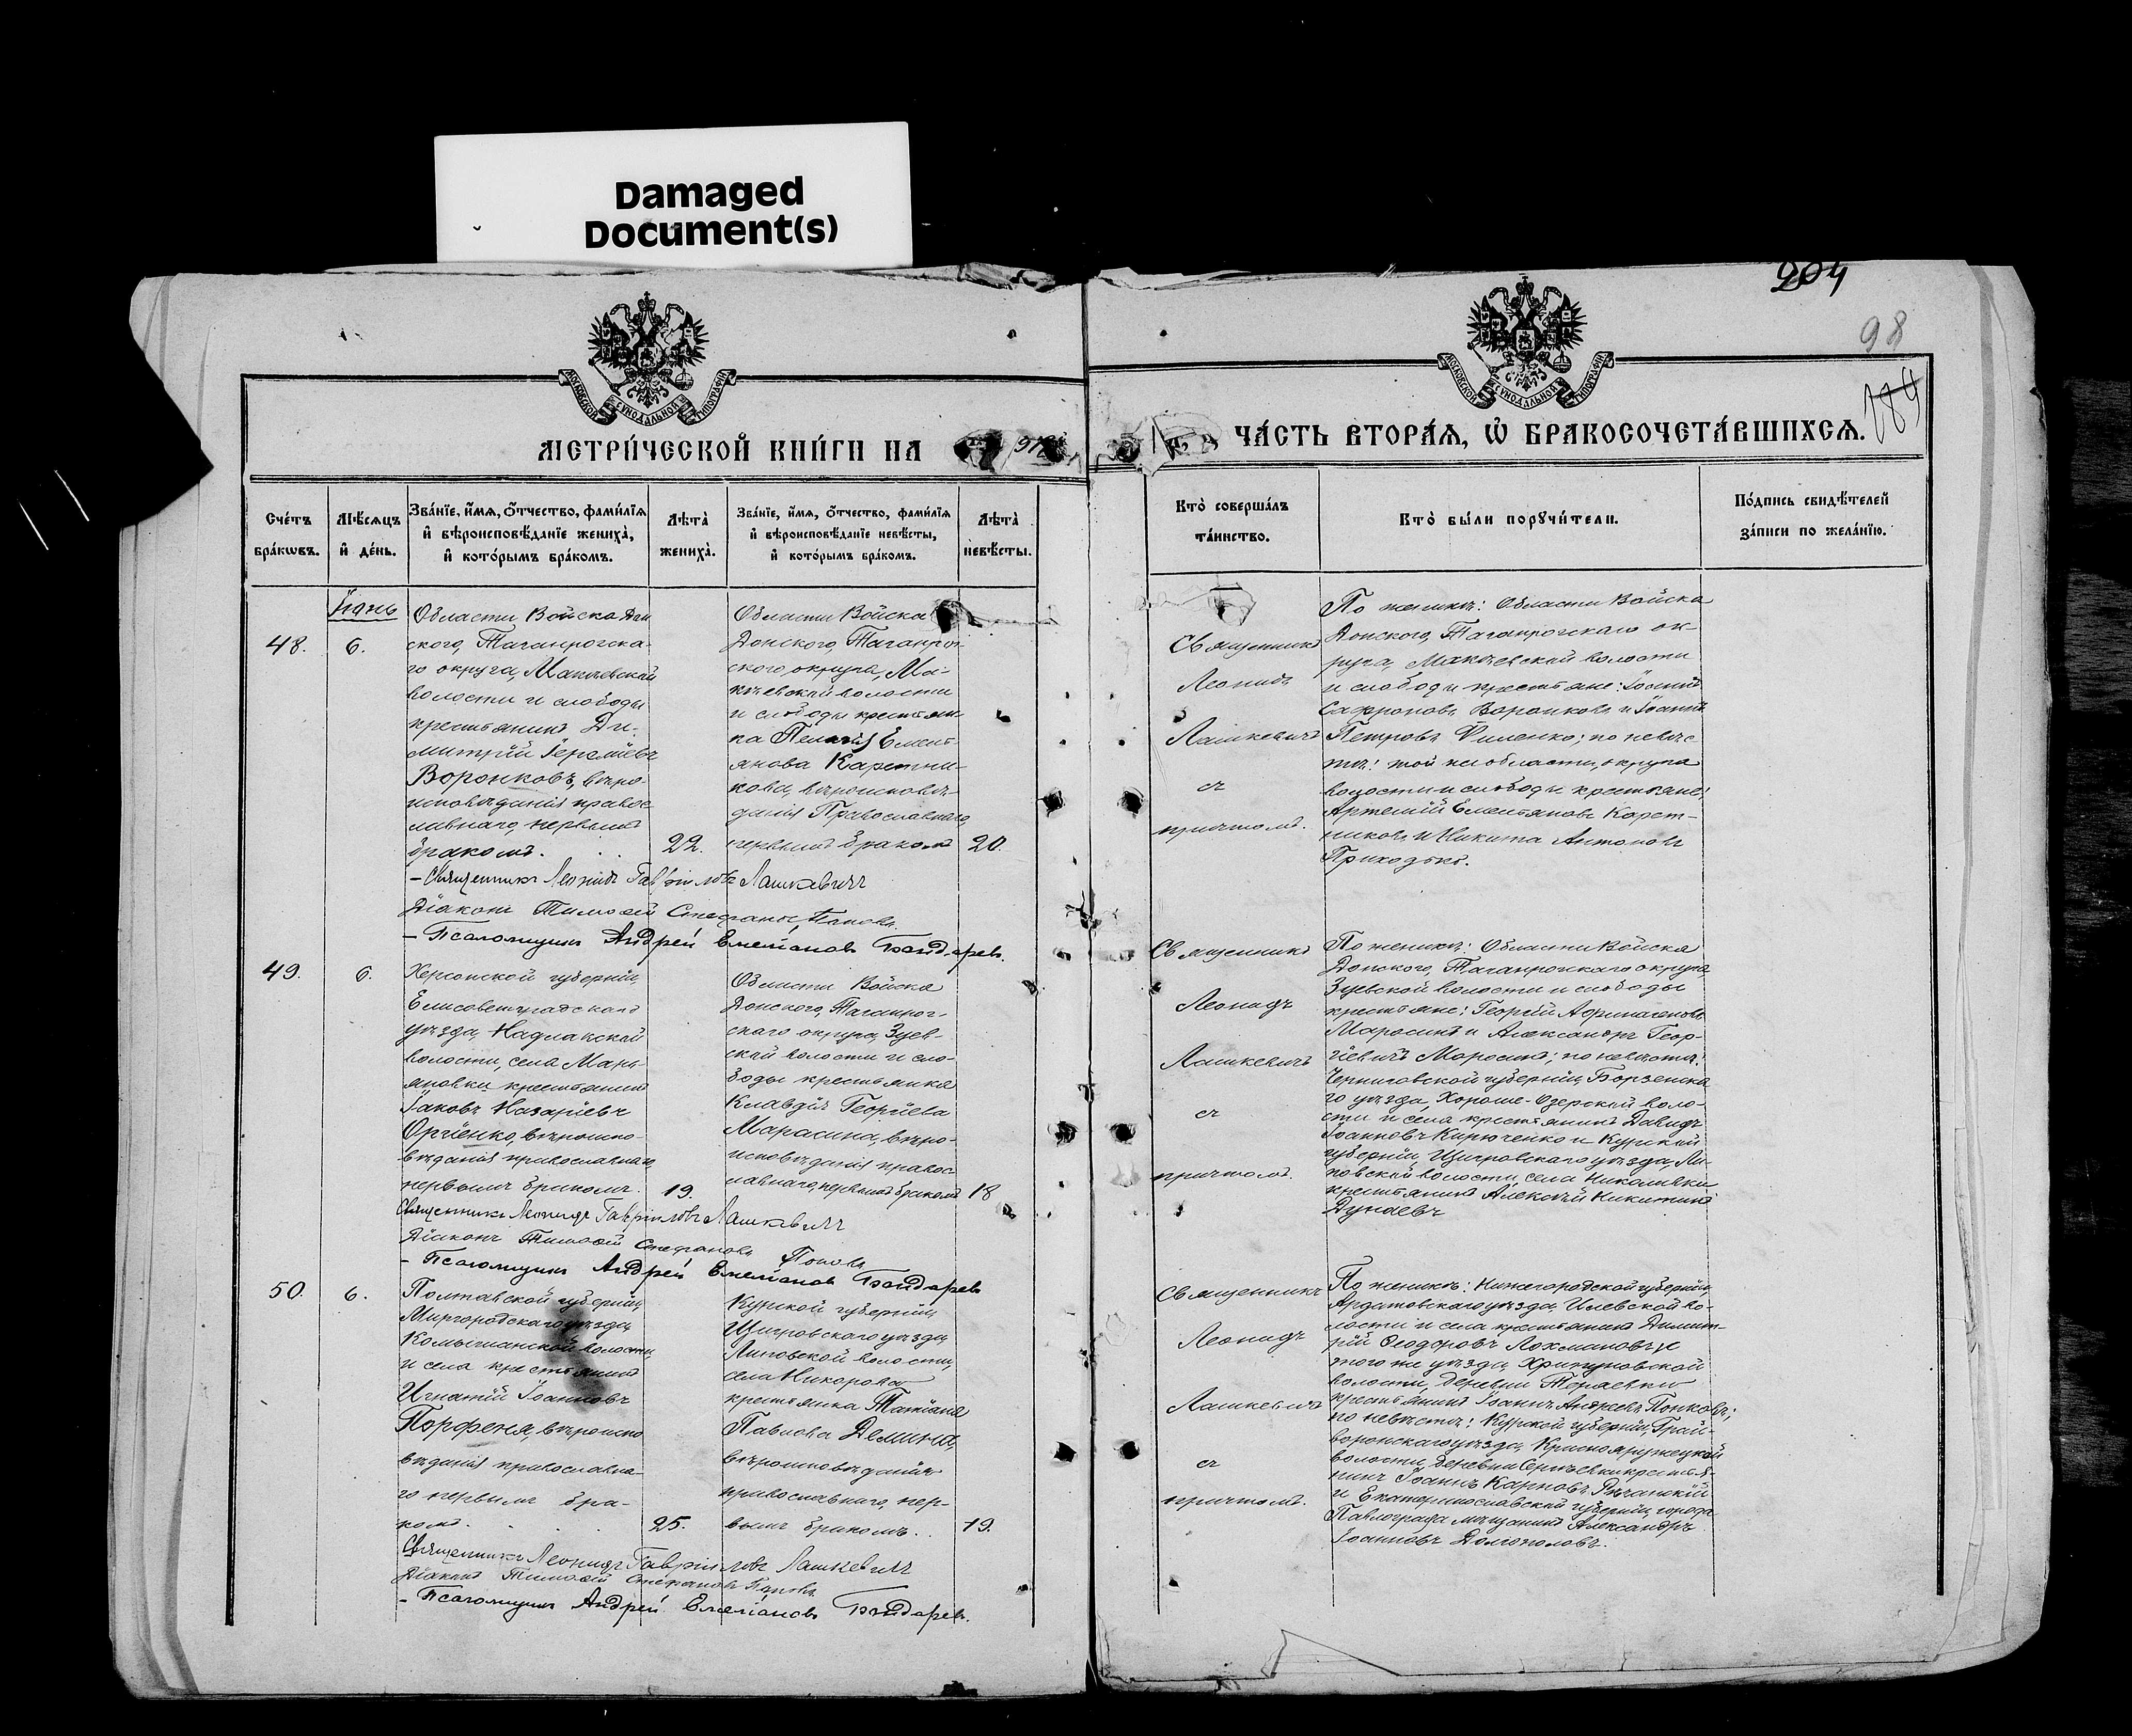 Damaged
Document(s)
204
98
184
МОСКОВСКОЙ СѴНОДАЛЬНОЙ ТИПОГРАФІИ
МОСКОВСКОЙ СѴНОДАЛЬНОЙ ТИПОГРАФІИ
МЕТРИ́ЧЕСКОЙ КНИ́ГИ НА
ЧА́СТЬ ВТОРА́Я, Ѡ҆ БРАКОСОЧЕТА́ВШИХСЯ.
Сче́тъ бра́кѡвъ.
Мѣ́сяцъ и҆ де́нь.
Зва́нїе, и҆́мя, ѻ҆́тчество, фами́лїя и҆ вѣроисповѣ́данїе жениха̀, и҆ кото́рымъ бра́комъ.
Лѣта̀ жениха̀.
Зва́нїе, и҆́мя, ѻ҆́тчество, фами́лїя и҆ вѣроисповѣ́данїе невѣ́сты, и҆ кото́рымъ бра́комъ.
Лѣта̀ невѣ́сты.
Кто̀ соверша́лъ та́инство.
Кто̀ бы́ли порꙋчи́тели.
По́дпись свидѣ́телей за́писи по жела́нїю.
Іюнь
48.
6.
Области Войска Дон
ского, Таганрогска-
го округа, Макѣевской
волости и слободы
крестьянинъ Ди-
митрій Іереміевъ
Воронковъ, вѣро-
исповѣданія правос
лавнаго, первымъ
бракомъ.
22.
Области Войска
Донского, Таганрог-
ского округа, Ма-
кѣевской волости
и слободы крестьян-
ка Пелагія Емель-
янова Каретни-
кова, вѣроисповѣ-
данія Православнаго,
первымъ бракомъ
20.
Священникъ
Леонидъ
Лашкевичъ
съ
причтомъ.
По женихѣ: Области Войска
Донского, Таганрогскаго ок-
руга, Макѣевской волости
и слободы крестьяне: Іоаннъ
Сафроновъ Воронковъ и Іоаннъ
Петровъ Филенко; по невѣс
тѣ: той же области, округа
волости и слободы крестьяне:
Артемій Емельяновъ Карет-
никовъ и Никита Антоновъ
Приходько.
- Священникъ Леонидъ Гавріиловъ Лашкевичъ
Діаконъ Тимоѳей Стефановъ Поповъ
- Псаломщикъ Андрей Емеліановъ Бондаревъ.
49.
6.
Херсонской губерніи,
Елисаветградскаго
уѣзда, Надлакской
волости, села Марь-
яновки крестьянинъ
Іаковъ Назаріевъ
Оргіенко, вѣроиспо-
вѣданія православнаго,
первымъ бракомъ.
19.
Области Войска
Донского, Таганрог-
скаго округа, Зуев-
ской волости и сло-
боды крестьянка
Клавдія Георгіева
Марасина, вѣро-
исповѣданія правос
лавнаго, первымъ бракомъ
18
Священникъ
Леонидъ
Лашкевичъ
съ
причтомъ.
По женихѣ: Области Войска
Донского, Таганрогскаго округа,
Зуевской волости и слободы
крестьяне: Георгій
Маросинъ и Александръ Геор-
гіевичъ Маросинъ; по невѣстѣ:
Черниговской губерніи, Борзенска
го уѣзда, Хороше-Озерской воло-
сти и села крестьянинъ Давидъ
Іоанновъ Кирюченко и Курской
губерніи, Щигровскаго уѣзда, Ли-
повской волости, села Николаевки
крестьянинъ Алексѣй Никитинъ
Дунаевъ
Священникъ Леонидъ Гавріиловъ Лашкевичъ
Діаконъ Тимоѳей Стефановъ Поповъ
- Псаломщикъ Андрей Емеліановъ Бондаревъ
50.
6.
Полтавской губерніи,
Миргородскаго уѣзда,
Комышанской волости,
и села крестьянинъ
Игнатій Іоанновъ
Порфеня, вѣроиспо
вѣданія православна-
го первымъ бра-
комъ.
25.
Курской губерніи,
Щигровскаго уѣзда,
Липовской волости,
села Никорова
крестьянка Татіана
Павлова Демина,
вѣроисповѣданія
православнаго, пер-
вымъ бракомъ.
19.
Священникъ
Леонидъ
Лашкевичъ
съ
причтомъ.
По женихѣ: Нижегородской губерніи,
Ардатовскаго уѣзда, Илевской во-
лости и села крестьянинъ Димит-
рій Ѳеодоровъ Лохмановъ и
того же уѣзда,
волости, деревни
крестьянинъ Іоаннъ Андреевъ Попковъ;
по невѣстѣ: Курской губерніи, Грай-
воронскаго уѣзда, Краснояружской
волости, деревни Сергѣевки крестья-
нинъ Іоаннъ Карповъ
и Екатеринославской губерніи, города
Павлограда мѣщанинъ Александръ
Іоанновъ Долгополовъ.
Священникъ Леонидъ Гавріиловъ Лашкевичъ
Діаконъ Тимоѳей Стефановъ Поповъ
- Псаломщикъ Андрей Емеліановъ Бондаревъ.